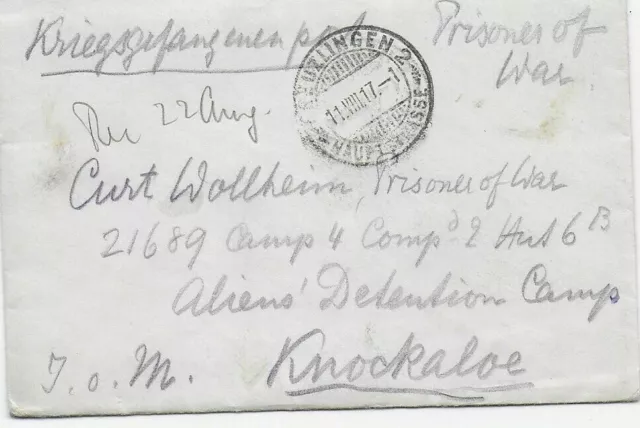 Kriegsgefangenenpost Prisoner of
War
11.VIII.17-1
22 Aug.
Curt Wollheim, Prisoner of War
21689 Camp 4 Comp^d 2 Hut 6^B
Aliens' Detention Camp
I.o.M. Knockaloe